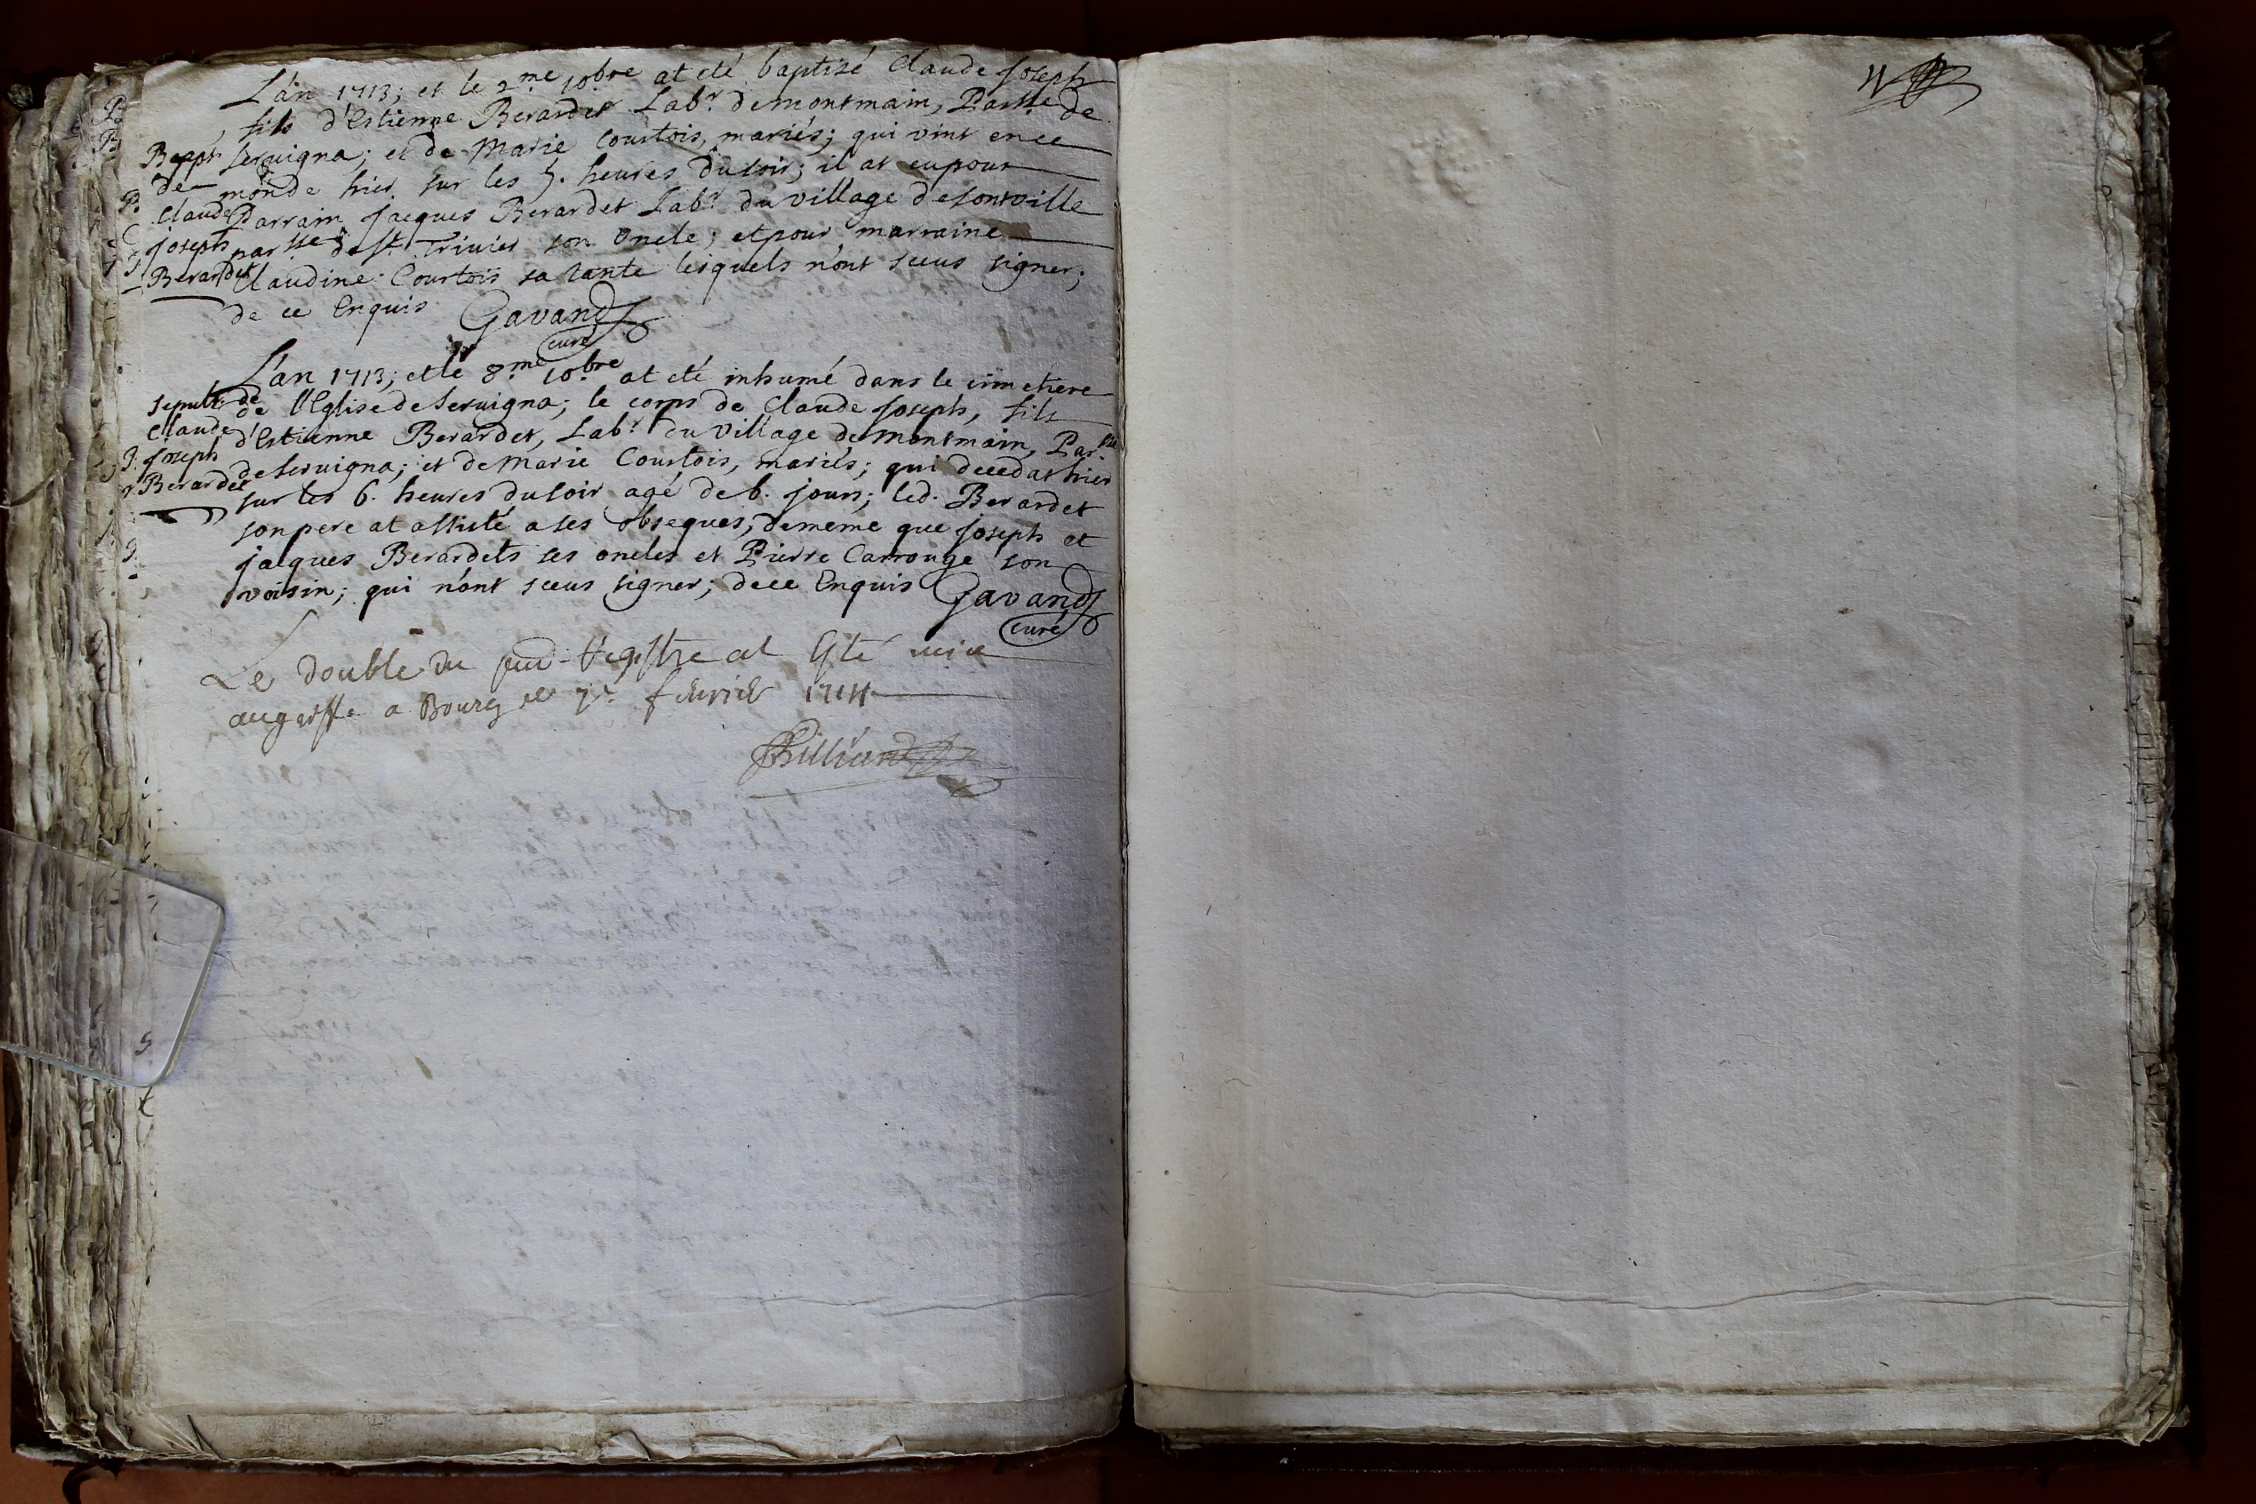 L'an 1713; et le 2.me 10.bre at eté baptizé Claude Joseph
fils d'Estienne Berardet Lab.r de montmain, Par.sse de
Servigna; et de Marie Courtois, mariés; qui vint en ce
monde hier sur les 5. heures du soir; il at eu pour
Parrain Jacques Berardet Lab.r du village de sontville
par.sse de st. Trivier son oncle; et pour marraine
Claudine Courtois sa tante lesquels n'ont sceus signer;
de ce Enquis Gavand
curé
Bapt.
de
Claude
Joseph
Berardet
L'an 1713; et le 8.me 10.bre at eté inhumé dans le cimetiere
de l'Eglise de Servigna; le corps de Claude Joseph, fils
d'Estienne Berardet, Lab.r du village de montmain, Par.sse
de Servigna; et de Marie Courtois, mariés; qui decedat hier
sur les 6. heures du soir agé de 6. jours; led. Berardet
son pere at assisté a ses obseques, de meme que joseph et
jacques Berardets ses oncles et Pierre Carrouge son
voisin; qui n'ont sceus signer; de ce Enquis Gavand
curé
sepult. de
Claude
Joseph
Berardet
Le double du registre at esté
au greffe a Bourg le 7.e febvrier 1714